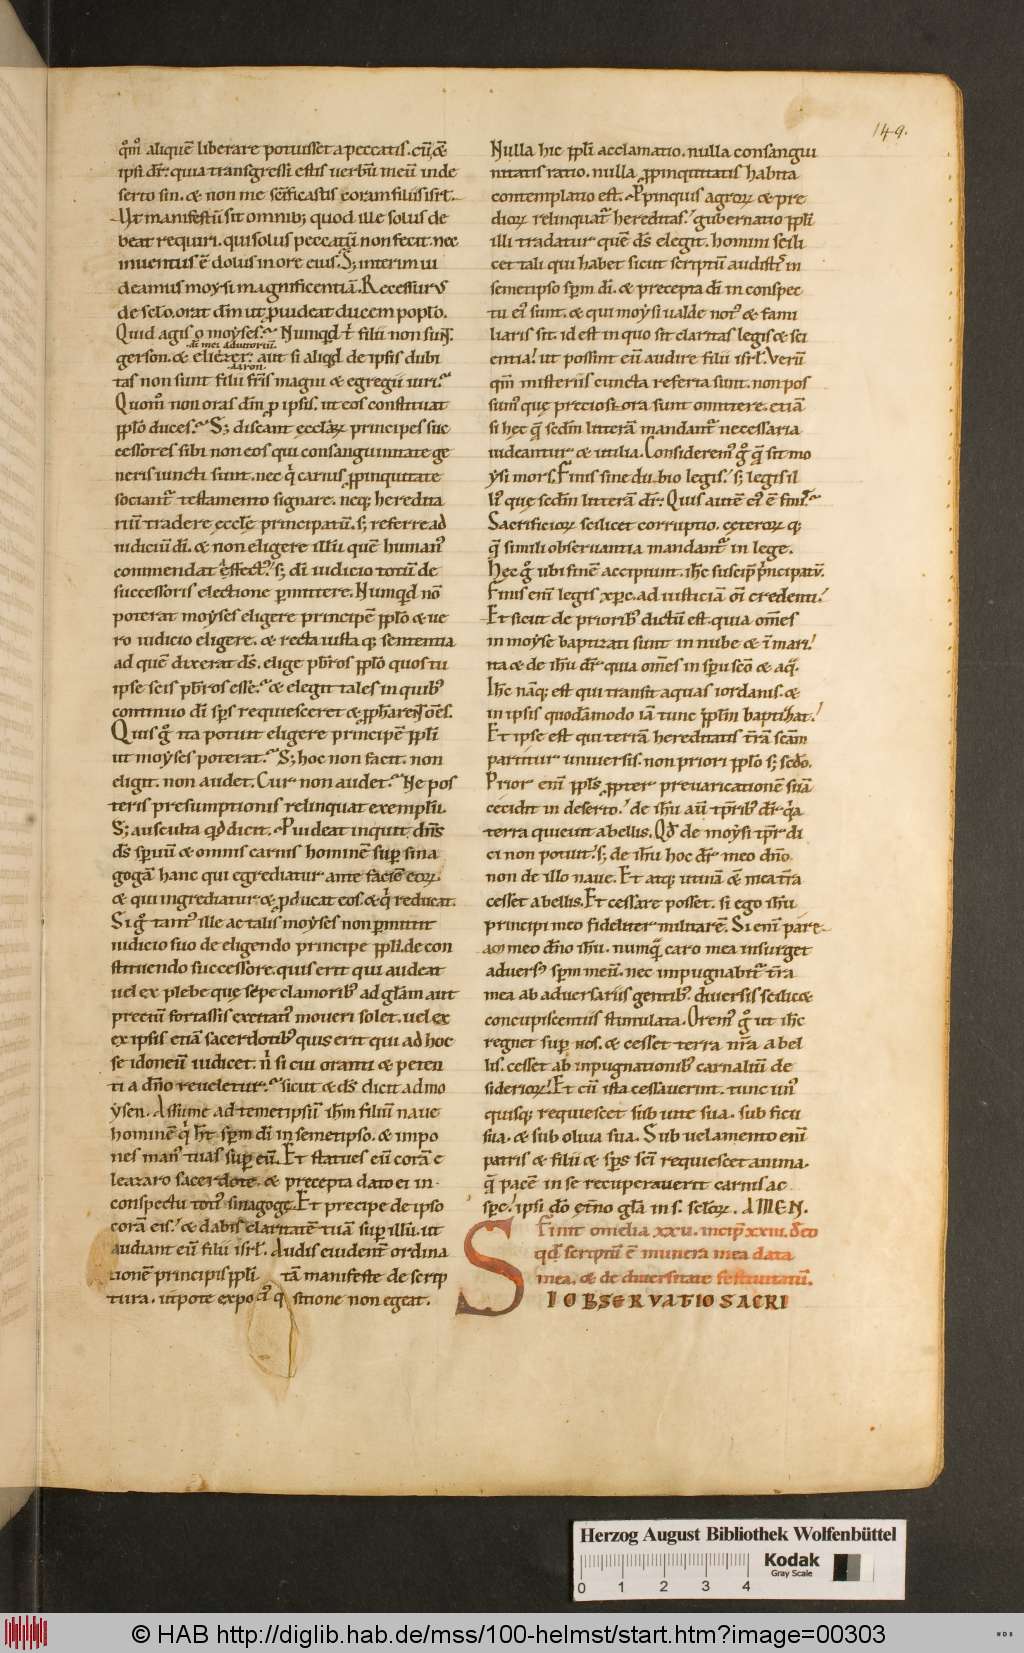 149.
qm̄o aliquē liberare potuisset a peccatis. cū, &
ipsi dr̄: quia transgressi estis uerbū meū in de
serto sin. & non me sc̄ificastis coram filiis isrl̄.
Ut manifestū sit omnib; quod ille solus de
beat requiri. qui solus peccatū non fecit. nec
inuentus ē dolus in ore eius. S; interim ui
deamus moysi magnificentiā. Recessurus
de sclo. orat dm̄ ut p̱uideat ducem poplo.
Quid agis o moyses? Numqd t̄ filii non sunt.
di mei adiutoriū.
gerson. & eliezer? aut si aliqd de ipsis dubi
aaron.
tas non sunt filii fr̄is magni & egregii uiri?
Quom̄ non oras dm̄ p ipsis. ut eos constituat
pplo duces? S; discant ęccłaꝝ principes suc
cessores sibi non eos qui consanguinitate ge
neris iuncti sunt. nec q̇ carnis ppinquitate
sociant̄ testamento signare. neq; heredita
riū tradere eccłę principatū. s; referre ad
iudiciū di. & non eligere illū quē humanꝰ
commendat effectꝰ. s; di iudicio totū de
successoris electione pmittere. Numqd nō
poterat moyses eligere principē pplo & ue
ro iudicio eligere. & recta iusta q; sententia
ad quē dixerat ds̄. elige pbr̄os pplo quos tu
ipse scis pbr̄os esse? & elegit tales in quibꝰ
continuo di sp̄s requiesceret & ppharent oēs.
Quis g̊ ita potuit eligere principē ppli
ut moyses poterat? S; hoc non facit. non
eligit. non audet. Cur non audet? Ne pos
teris presumptionis relinquat exemplū.
S; ausculta qd dicit. Puideat inquit dn̄s
ds̄ spirituū & omnis carnis hominē sup sina
gogā hanc qui egrediatur ante faciē eoꝝ.
& qui ingrediatur & pducat eos. & q̇ reducat.
Si g̊ tantꝰ ille ac talis moyses non pmittit
iudicio suo de eligendo principe ppli. de con
stituendo successore. quis erit qui audeat
uel ex plebe quę sepe clamoribꝰ ad gl̄am aut
preciū fortassis excitatꝰ moueri solet. uel ex
ex ipsis etiā sacerdotibꝰ quis erit qui ad hoc
se idoneū iudicet. n̄ si cui oranti & peten
ti a dn̄o reueletur? sicut & ds̄ dicit ad mo
ysen. Assume ad temetipsū ihm̄ filiū naue
hominē q̇ ht̄ spm̄ di in semetipso. & impo
nes manꝰ tuas sup eū. Et statues eū corā e
leazaro sacerdote. & precepta dato ei in
conspectu totꝰ sinagogę. Et precipe de ipso
corā eis. & dabis claritatē tuā sup illū. ut
audiant eū filii isrl̄. Audis euidenter ordina
tionē principis ppli tā manifeste de scrip
tura. ut pote expo sitione non egeat.
Nulla hic ppli acclamatio. nulla consangui
nitatis ratio. nulla ppinquitatis habita
contemplatio est. Ppinquis agroꝝ & pre
dioꝝ relinquat̄ hereditas. gubernatio ppli
illi tradatur quē ds̄ elegit. homini scili
cet tali qui habet sicut scriptū audistis in
semetipso spm̄ di. & precepta di in conspec
tu eiꝰ sunt. & qui moysi ualde notꝰ & fami
liaris sit. id est in quo sit claritas legis & sci
entia. ut possint eū audire filii isrl̄. Verū
qm̄ misteriis cuncta referta sunt. non pos
sumꝰ quę preciosiora sunt omittere. etiā
si hęc q̄ scdm̄ litterā mandant̄ necessaria
uideantur & utilia. Consideremꝰ g̊ q̄ sit mo
ysi mors. Finis sine dubio legis. s; legis il
liꝰ quę scdm̄ litterā dr̄. Quis autē eiꝰ ē finis?
Sacrificioꝝ scilicet corruptio. ceteroꝝ q;
q̄ simili obseruantia mandant̄ in lege.
Hęc g̊ ubi finē accipiunt. ihc̄ suscipit principatū.
Finis eni legis xp̄c. ad iusticiā oi credenti.
Et sicut de prioribꝰ dictū est. quia om̄es
in moyse baptizati sunt in nube & in mari.
ita & de ihu dr̄ quia om̄es in spu sco & aq̄.
Ihc̄ naq; est qui transit aquas iordanis. &
in ipsis quodāmodo iā tunc pplm baptizat.
Et ipse est qui terrā hereditatis t̄rā scam
partitur uniuersis. non priori pplo s; scdo.
Prior eni ppls ppter preuaricationē suā
cecidit in deserto. de ihu au tp̄ribꝰ dr̄ qa
terra quieuit a bellis. Qd de moysi tp̄r di
ci non potuit. s; de ihu hoc dr̄ meo dn̄o
non de illo naue. Et atq; utinā & mea t̄ra
cesset a bellis. Et cessare posset. si ego ihu
principi meo fideliter militarē. Si eni pare
am meo dn̄o ihu. numq̄ caro mea insurget
aduersꝰ spm̄ meū. nec impugnabit̄ t̄ra
mea ab aduersariis gentibꝰ. diuersis scilic&
concupiscentiis stimulata. Oremꝰ g̊ ut ihc̄
regnet sup nos. & cesset terra nr̄a a bel
lis. cesset ab inpugnationibꝰ carnaliū de
sideriorꝝ. Et cū ista cessauerint. tunc unꝰ
quisq; requiescet sub uite sua. sub ficu
sua. & sub oliua sua. Sub uelamento eni
patris & filii & sp̄s sc̄i requiescet anima.
q̄ pacē in se recuperauerit carnis ac
sp̄c. ipsi do etn̄o gl̄a in s. scloꝝ. AMEN.
Finit omelia xxu. incip xxiii. de eo
qd scriptū ē munera mea data
mea. & de diuersitate festiuitatum.
SI OBSERVATIO SACRI
Herzog August Bibliothek Wolfenbüttel
Kodak
Gray Scale
0 1 2 3 4
© HAB http://diglib.hab.de/mss/100-helmst/start.htm?image=00303
HAB